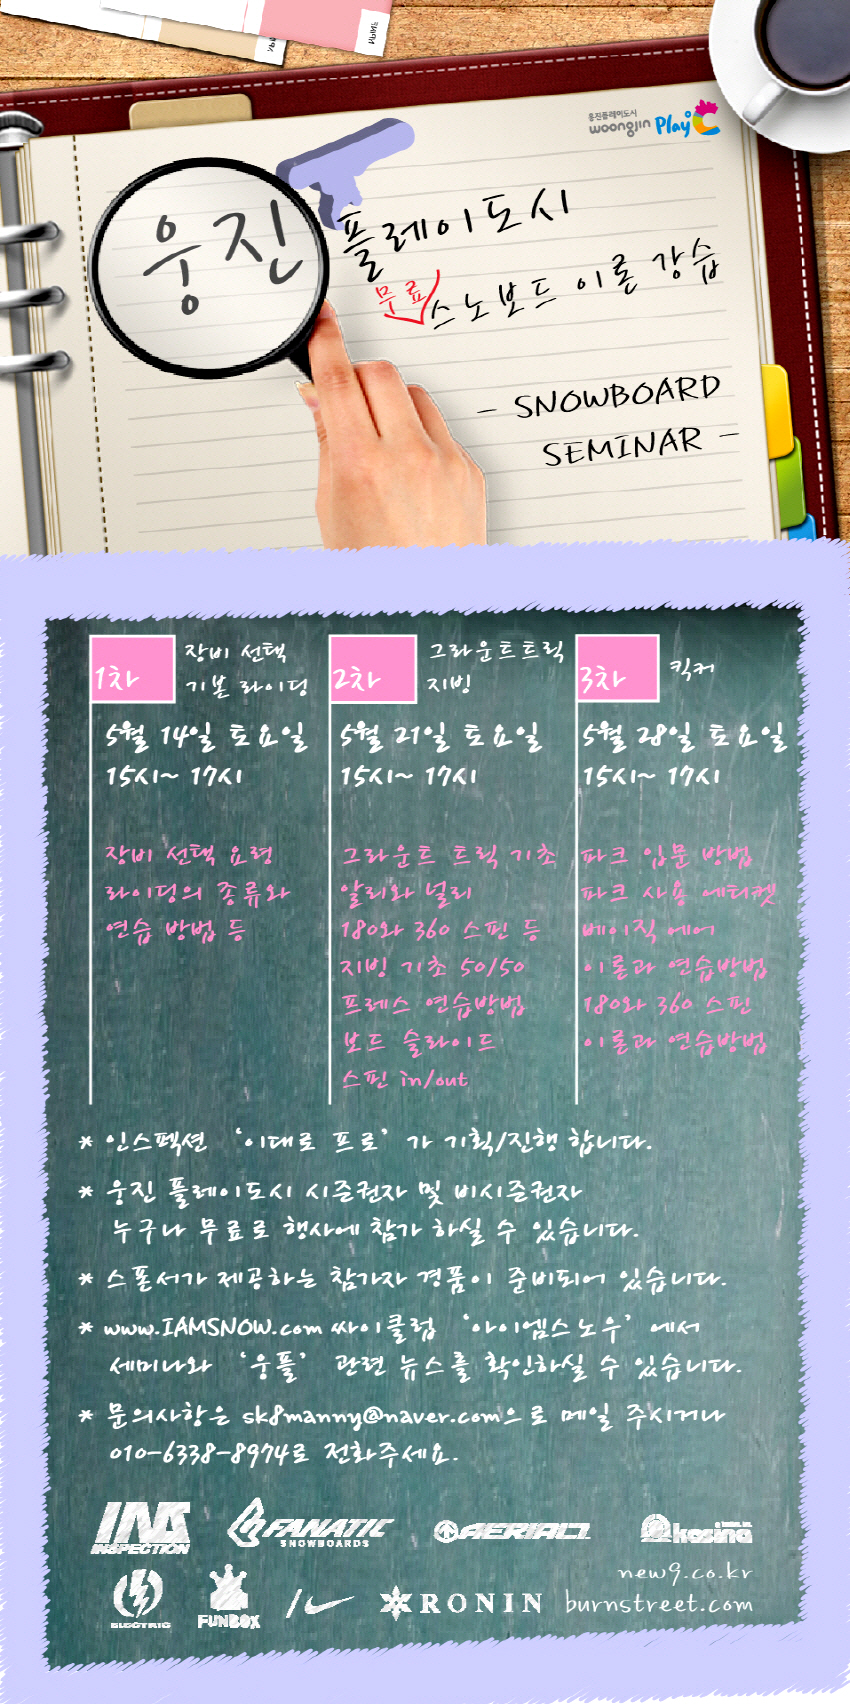 웅진플레이도시
woongjin Play
웅진 플레이도시
무료
스노보드 이론 강습
- SNOWBOARD
SEMINAR -
1차
장비 선택
기본 라이딩
5월 14일 토요일
15시~ 17시
장비 선택 요령
라이딩의 종류와
연습 방법 등
2차
그라운트트릭
지빙
5월 21일 토요일
15시~ 17시
그라운트 트릭 기초
알리와 널리
180와 360 스핀 등
지빙 기초 50/50
프레스 연습방법
보드 슬라이드
스핀 in/out
3차
킥커
5월 28일 토요일
15시~ 17시
파크 입문 방법
파크 사용 에티켓
베이직 에어
이론과 연습방법
180와 360 스핀
이론과 연습방법
* 인스펙션 ‘이대로 프로’ 가 기획/진행 합니다.
* 웅진 플레이도시 시준권자 및 비시준권자
누구나 무료로 행사에 참가 하실 수 있습니다.
* 스폰서가 제공하는 참가자 경품이 준비되어 있습니다.
* www.IAMSNOW.com 싸이클럽 ‘아이엠스노우’ 에서
세미나와 ‘웅플’ 관련 뉴스를 확인하실 수 있습니다.
* 문의사항은 sk8manny@naver.com으로 메일 주시거나
010-6338-8974로 전화주세요.
INS
INSPECTION
FANATIC
SNOWBOARDS
kasina
ELECTRIC
FUNBOX
RONIN
new9.co.kr
burnstreet.com